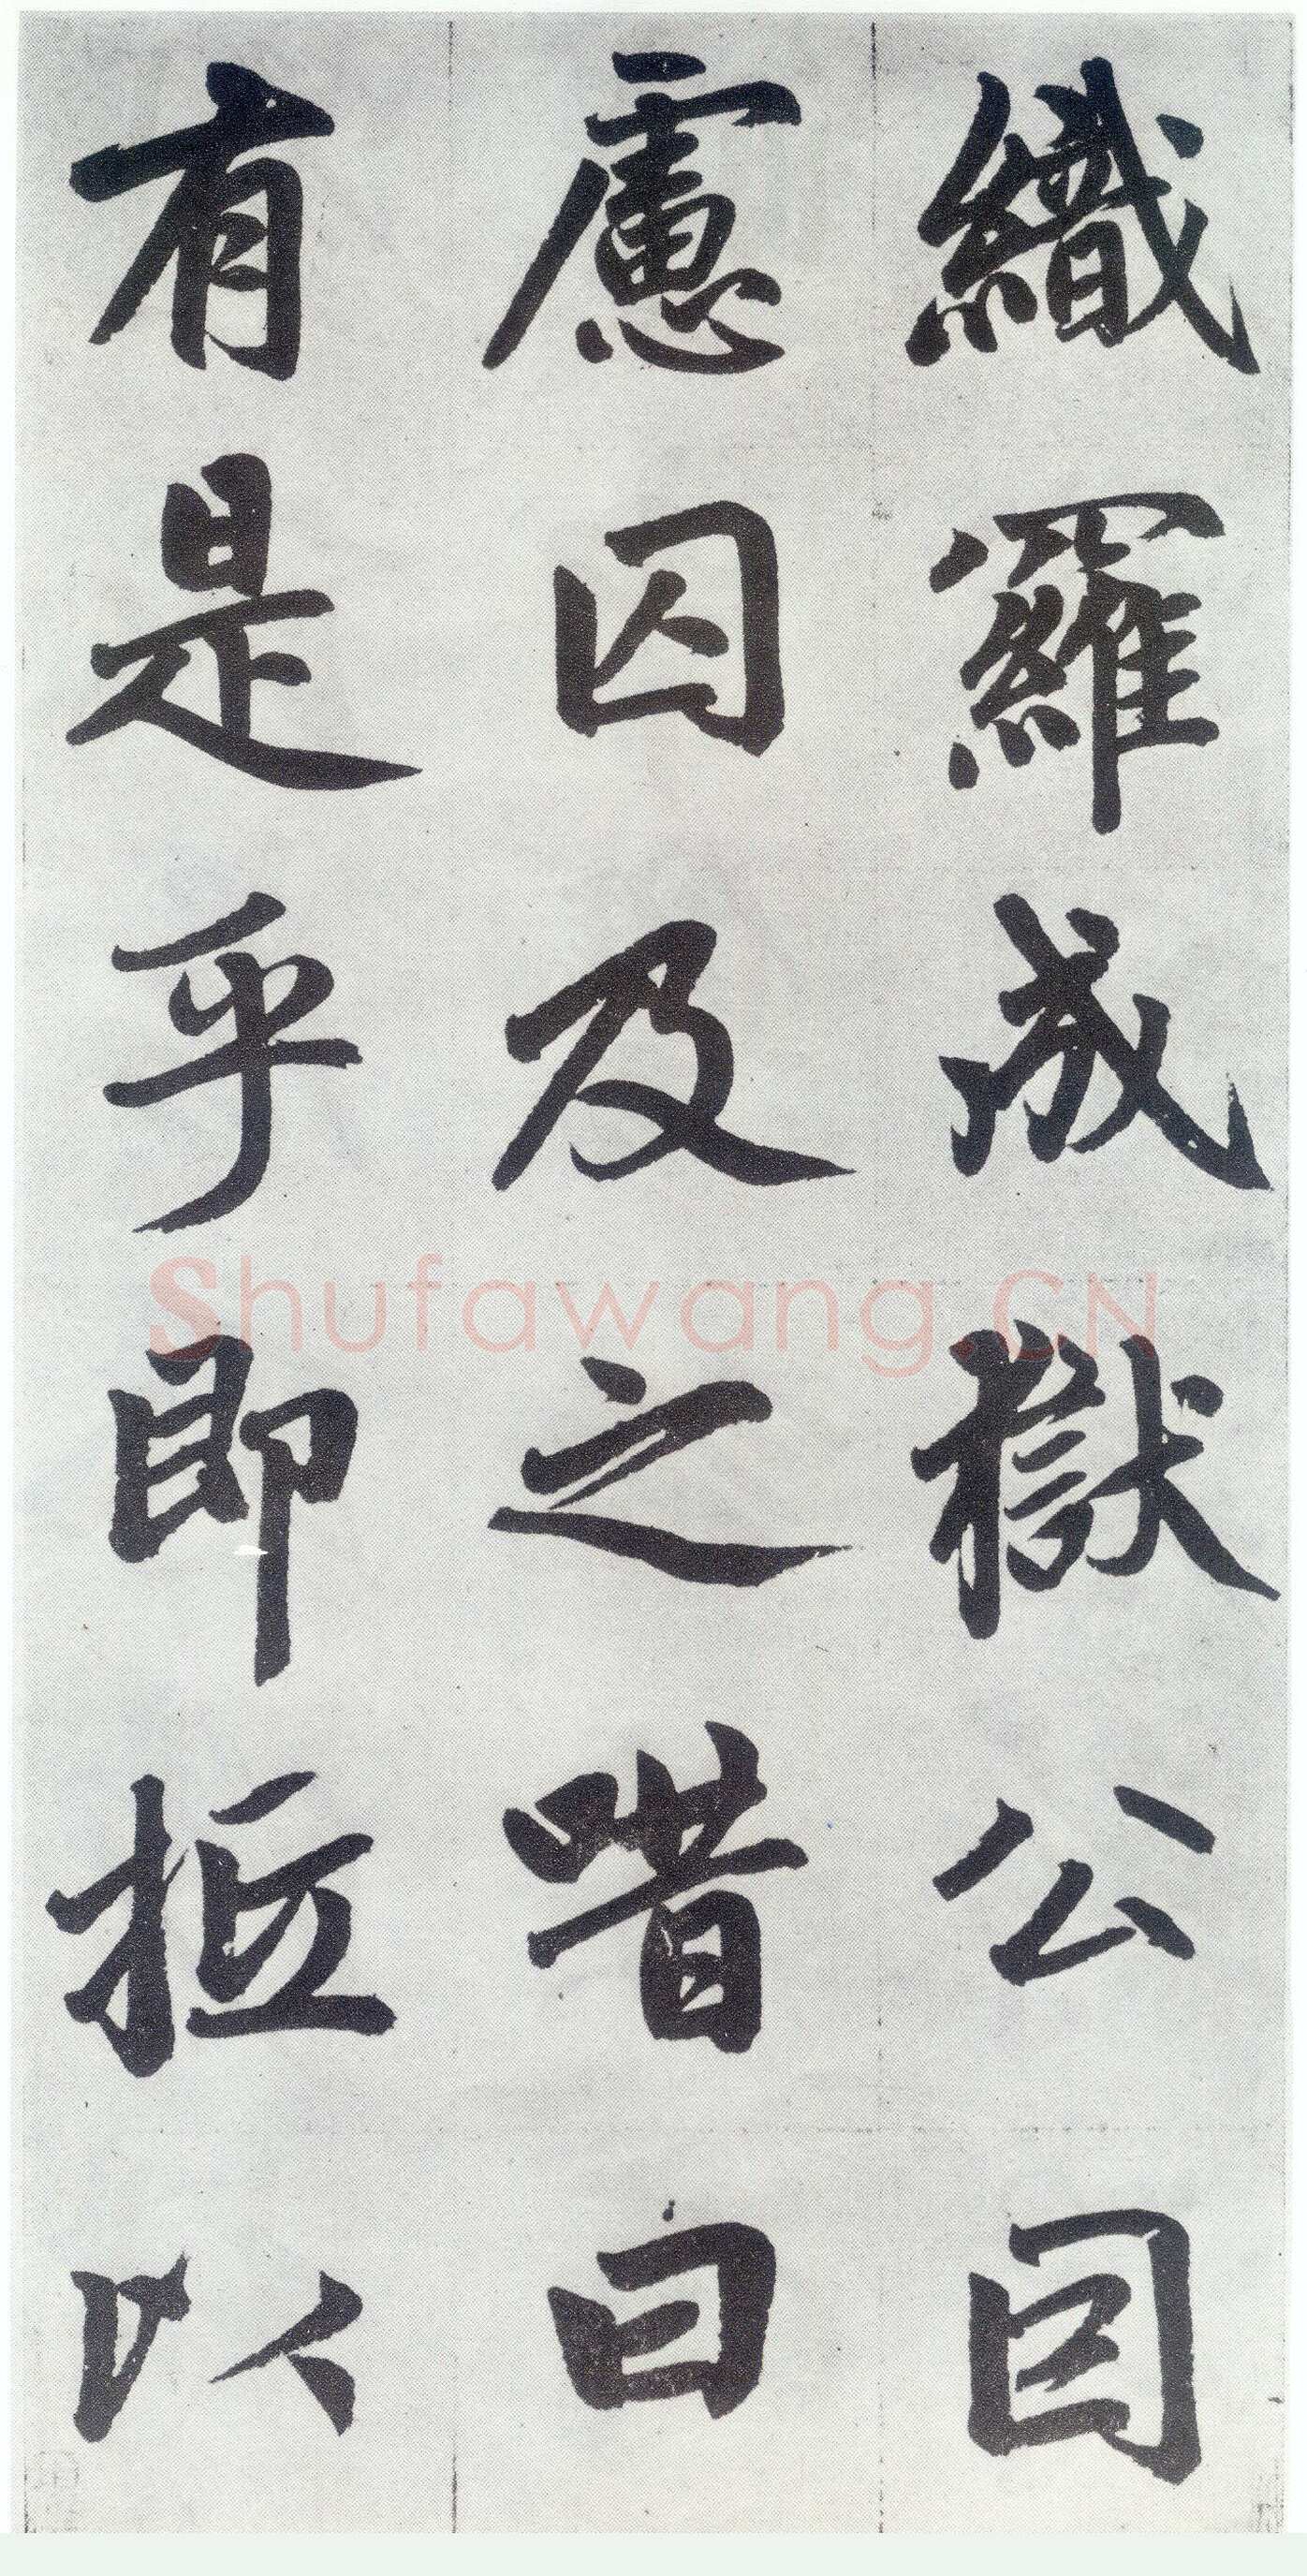 織羅成獄公因
慮囚及之唶曰
有是乎即抵以
Shufawang.CN